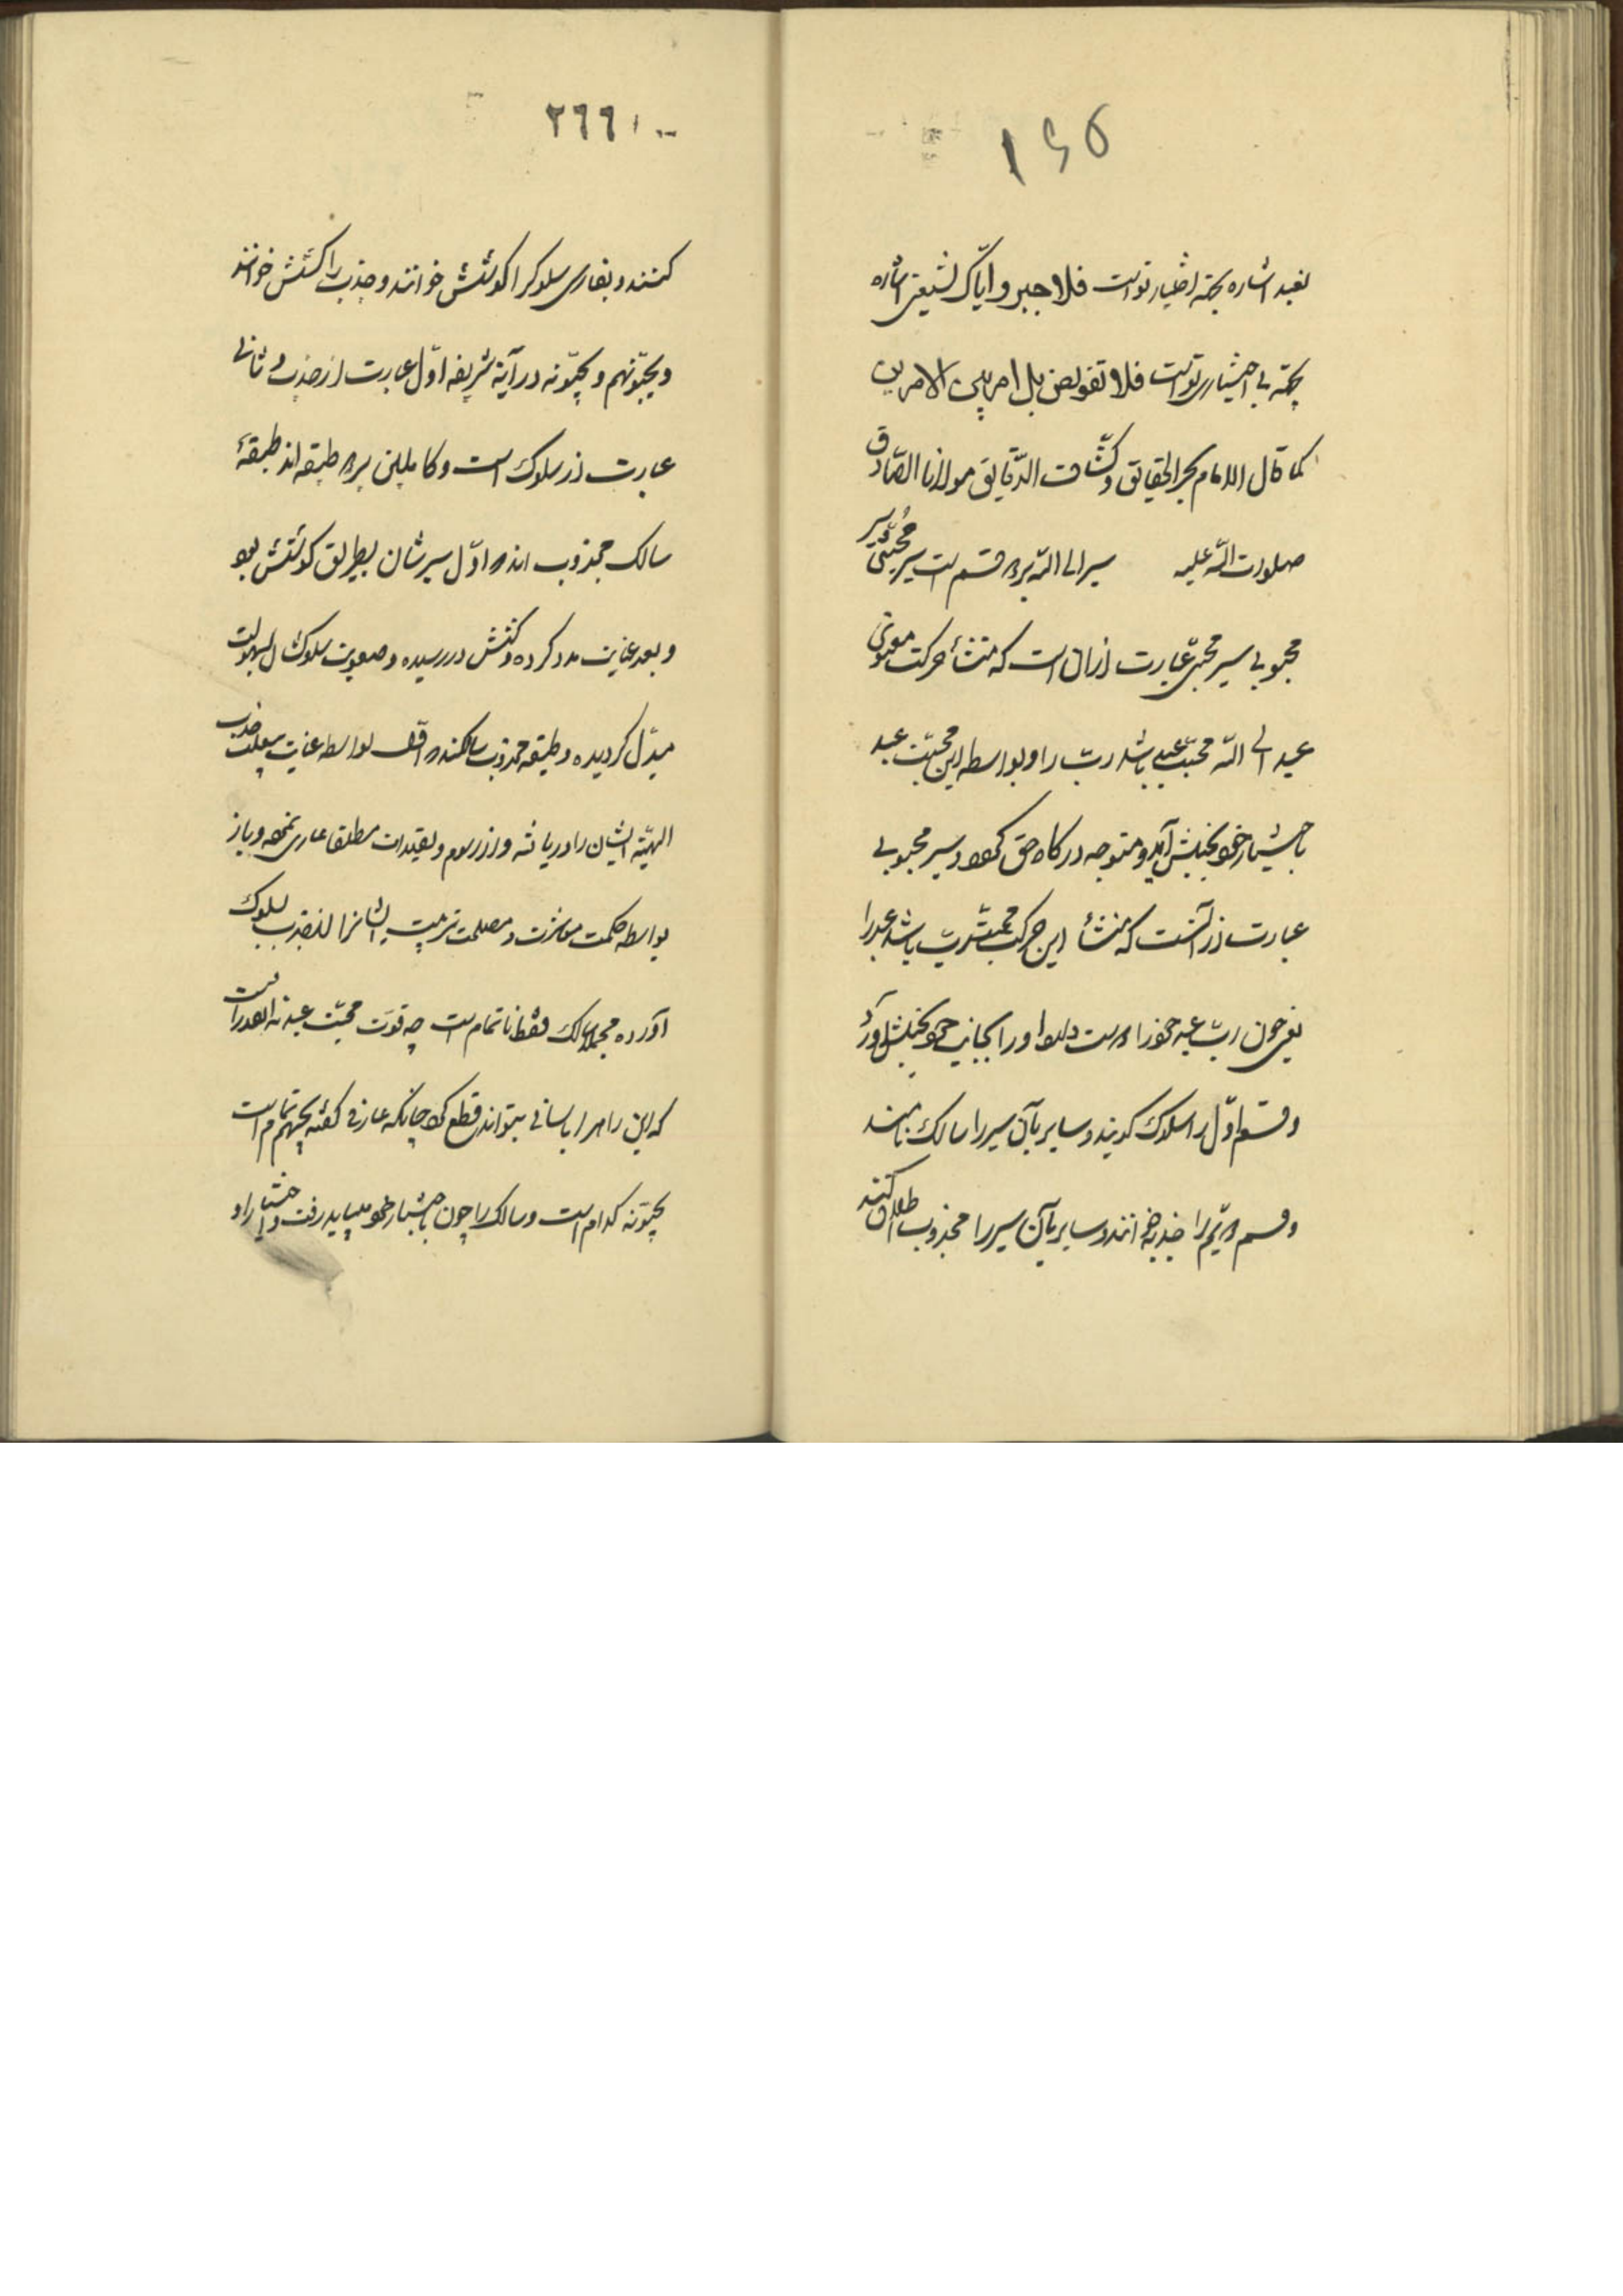 ۱۶۵
نعبد اشاره بجهة اختیار تواست فلا جبر و ایاک نستعین اشاره
بجهة بی اختیاری تواست فلا تفویض بل امر بین الامرین
کما قال الامام بحر الحقایق و کشاف الدقایق مولانا الصادق
صلوات الله علیه سیر الی الله بر دو قسم است سیر محبی و سیر
محبوبی سیر محبی عبارت ازان است که منشأ حرکت معنوی
عبد الی الله محبت عبد باشد رب را و بواسطه این محبت عبد
باختیار خود بجنبش آید و متوجه درکاه حق کردد و سیر محبوبی
عبارت از آنست که منشأ این حرکت محبت رب باشد عبد را
یعنی چون رب عبد خود را دوست دارد او را بجانب خود بجنبش آورد
و قسم اول را سلوک کویند و سایر بآن سیر را سالک نامند
و قسم دویم را جذبه خوانند و سایر بآن سیر را مجذوب اطلاق کنند
۲۶۶
کنند و بفارسی سلوک را کوشش خوانند و جذب را کشش خوانند
و یحبهم و یحبونه در آیة شریفه اول عبارت از جذب و ثانی
عبارت از سلوک است و کاملین بر دو طبقه اند طبقهٔ
سالک مجذوب اند در اول سیرشان بطریق کوشش بود
و بعد عنایت مدد کرده و کشش در رسیده و صعوبت سلوکشان بسهولت
مبدل کردیده و طبقه مجذوب سالکند در اول بواسطه عنایت جذب
الهیه ایشان را دریافته و از رسوم و تقیدات مطلقا عاری نموده و باز
بواسطه حکمت معاشرت و مصلحت تربیت ایشانرا از جذب بسلوک
آورده مجملا سالک فقط ناتمام است چه قوت محبت عبد نه آنقدر است
که این راه را بآسانی بتواند قطع کرد چنانکه عارفی کفته یحبهم تمام است
یحبونه کدام است و سالک را چون باختیار خود میباید رفت و اختیار او